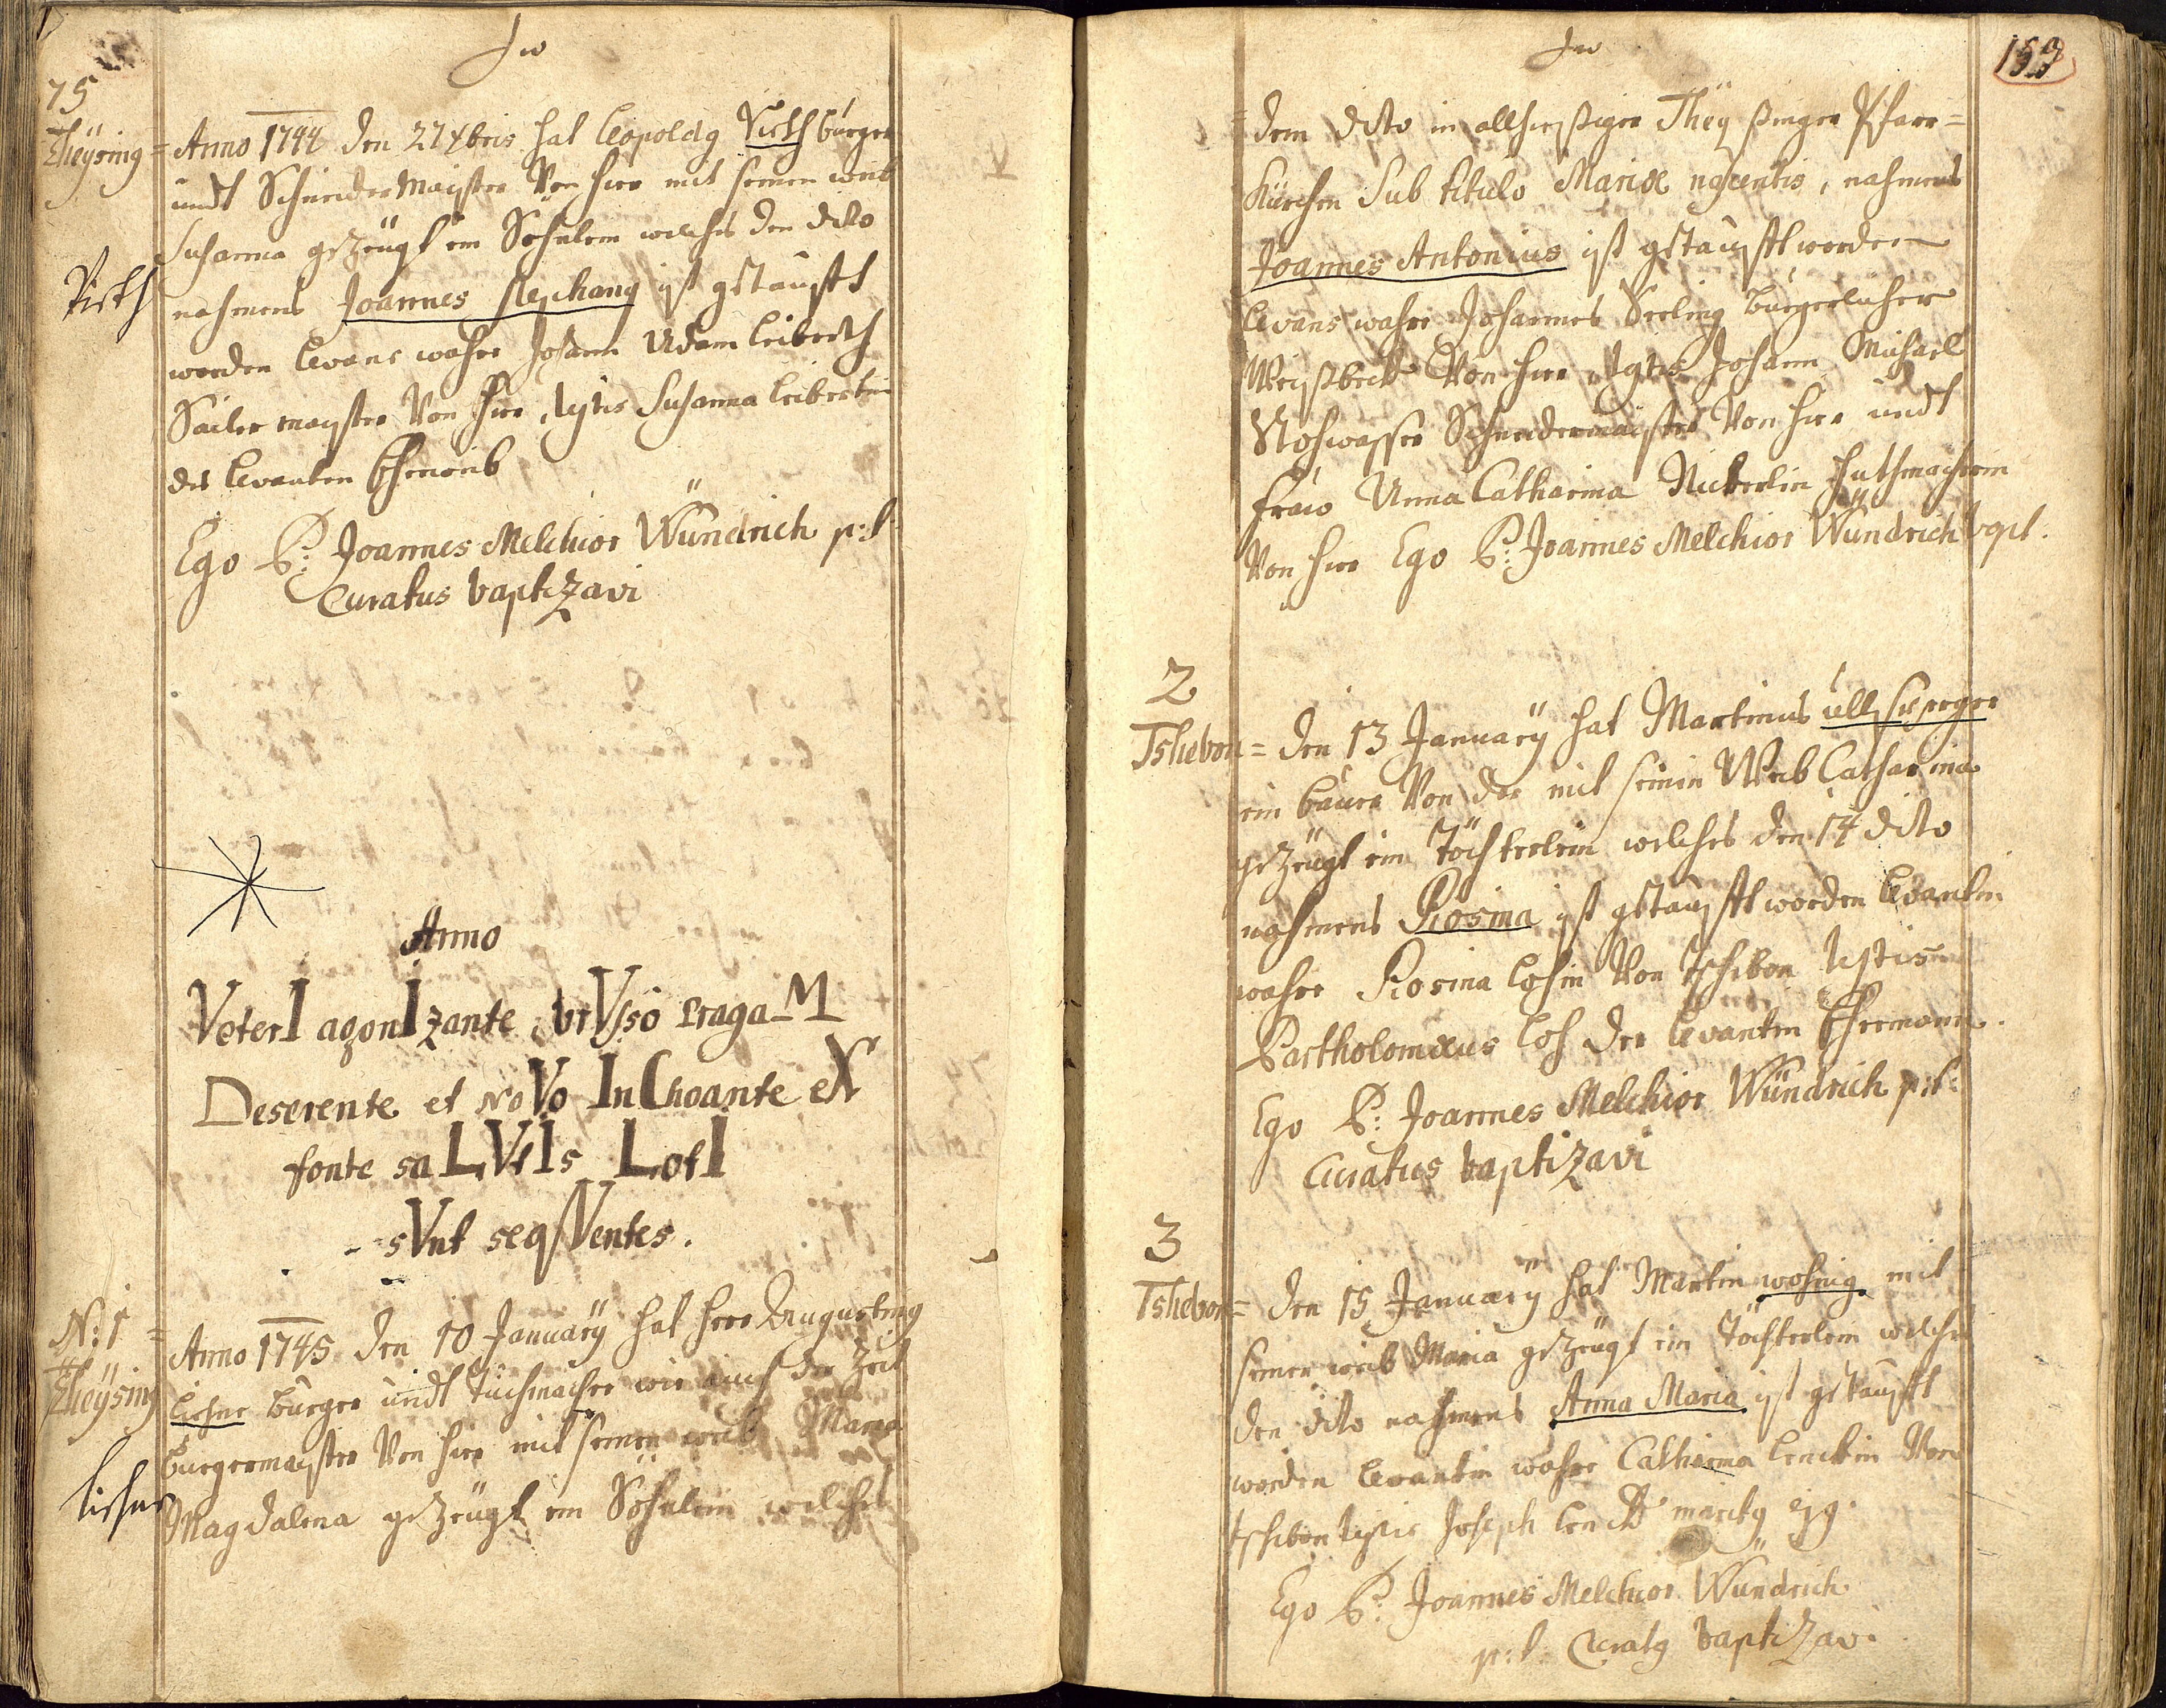 75
Theÿsing =
Anno 1744 den 27 Xbris hat Leopoldg Virth burger
undt Schneider Maister Von hier mit seinen weib
Susanna gezeügt ein Söhnlein welches den dito
Virth
nahmens Joannes ist getaufft
worden Levans wahre Johann Adam Leiberth
Sailer maister Von hier, testis Susanna Leibertin
des Levanten Eheweib
Ego P: Joannes Melchior Wündrich p:t
Curatus baptizavi
Anno
VeterI agonIzante, UrVso PragaM
Deserente et NoVo InChoante eX
fonte saLVtIs LotI
sVnt seqVentes.
N: 1 =
Theÿsing
Anno 1745 den 10 Januarÿ hat herr Augusting
Lissner burger undt tuchmacher wie auch der Zeit
burgermaister Von hier mit seinen weib Maria
Lissner
Magdalena gezeügt ein Söhnlein welches
159
= dem dito in allhiessiger Theÿssinger Pfarr=
Kürchen Sub titulo Mariæ nascentis, nahmens
Joannes Antonius ist getaufft worden
Levans wahre Johannes Seeling burgerlicher
Weissbeck Von hier, testes Johann Michael
Schneidermaister Von hier undt
fraw Anna Catharina Nickerlin Huthmacherin
Von hier Ego P: Joannes Melchior Wündrich bapt.
2
Tshebon = den 13 Januarÿ hat Martinus ullsperger
ein baure Von der mit seinen Weib Catharina
gezeügt ein Töchterlein welches den 14 dito
nahmens Rosina ist getaufft worden Levantin
wahre Rosina Lohin Von Tschebon testis
Bartholomæus Loh der Levantin Ehemann.
Ego P: Joannes Melchior Wündrich p:t:
Curatus baptizavi
3
Tshebon = den 15 Januarÿ hat Martin wohnig mit
seinen weib Maria gezeügt ein Töchterlein welches
den dito nahmens Anna Maria ist getaufft
worden Levantin wahre Catharina Lenckin Von
tschebon testis Joseph Lenck maritg ejg.
Ego P: Joannes Melchior Wündrich
p:t: Curatg baptizavi